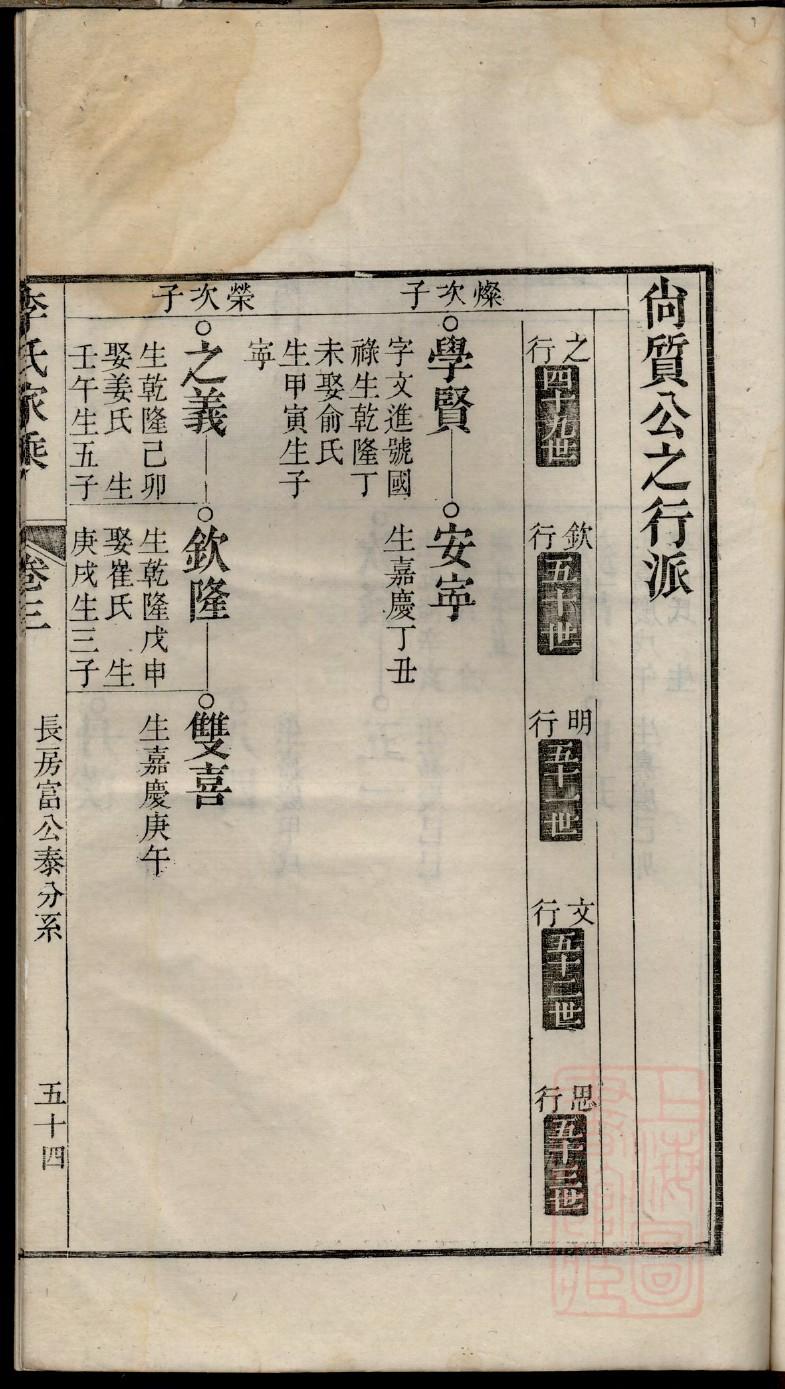 尙質公之行派
之行
四十九世
欽行
五十世
明行
五十一世
文行
五十二世
思行
五十三世
燦次子
學賢
字文進號國
祿生乾隆丁
未娶俞氏
生甲寅生子
寧
安寧
生嘉慶丁丑
榮次子
之義
生乾隆己卯
娶姜氏 生
壬午生五子
欽隆
生乾隆戊申
娶崔氏 生
庚戌生三子
雙喜
生嘉慶庚午
李氏家乘
卷三
長房富公泰分系
五十四
上海圖